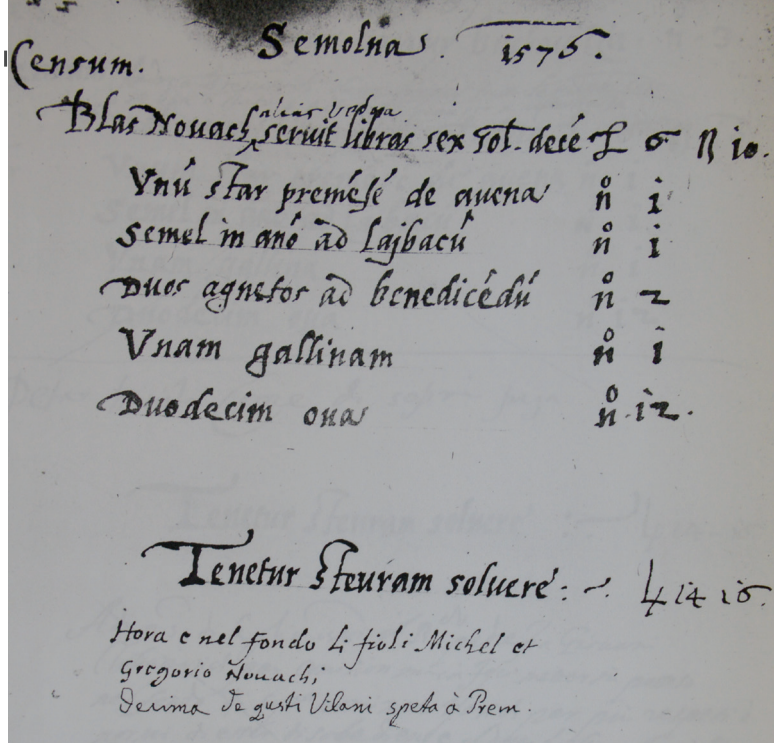 Semolna 1576.
Censum.
Blas Nouach alias Vedga seruit libras sex sol. decé L 6 ß 10.
Vnú star preméſé de auena n° 1
Semel in anó ad lajbacú n° 1
Duos agnetos ad benedicédú n° 2
Vnam gallinam n° 1
Duodecim oua n° 12.
Tenetur steuram soluere: ~. L 14 16.
Hora e nel fondo li fioli Michel et
Gregorio Nouachi
Decima de questi Vilani speta à Prem.